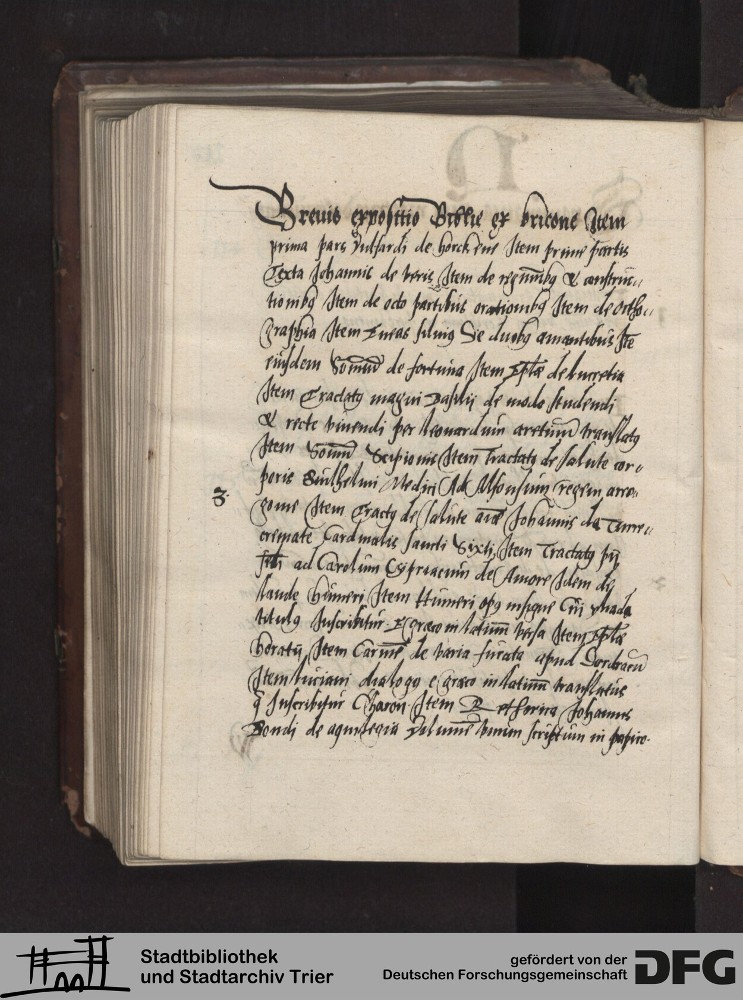 Breuis expositio Biblie ex bricone Item
prima pars Vulfardi de horckeue Item prime partis
Texta Johannis de veris Item de regimibꝫ & construc„
tionibꝫ Item de octo partibus orationibꝫ Item de ortho„
graphia Item Eneas siluiꝫ De duobꝫ amantibus Ite
eiusdem Somniū de fortuna Item Eplā de lucretia
Item Tractatꝫ magni Basilij de modo studendi
& recte viuendi per leonardum aretinū translatꝫ
Item Somniū Scipionis Item Tractatꝫ de salute cor„
poris Guilhelmi Medici Ad Alfonsum regem arro„
3. gonie Item Tractꝫ de salute aīe Johannis de Turre„
cremate Cardinalis sancti Sixti, Item Tractatꝫ pij
scdi ad Carolum Cypraeum de Amore Idem de
laude Humeri Item Humeri opꝫ insigne Cui yliada
titulꝫ Inscribitur. E graeco in latinum versa Item Eplā
horatij, Item Carmē de varia fucata apud Dordracū
Item luciani dialogꝫ e graeco in latinum translatus
q̄ Inscribitur Charon Item Rethorica Johannis
Bondi de aquilegia Volumē vnum scriptum in papiro.
Stadtbibliothek
und Stadtarchiv Trier
gefördert von der
Deutschen Forschungsgemeinschaft
DFG